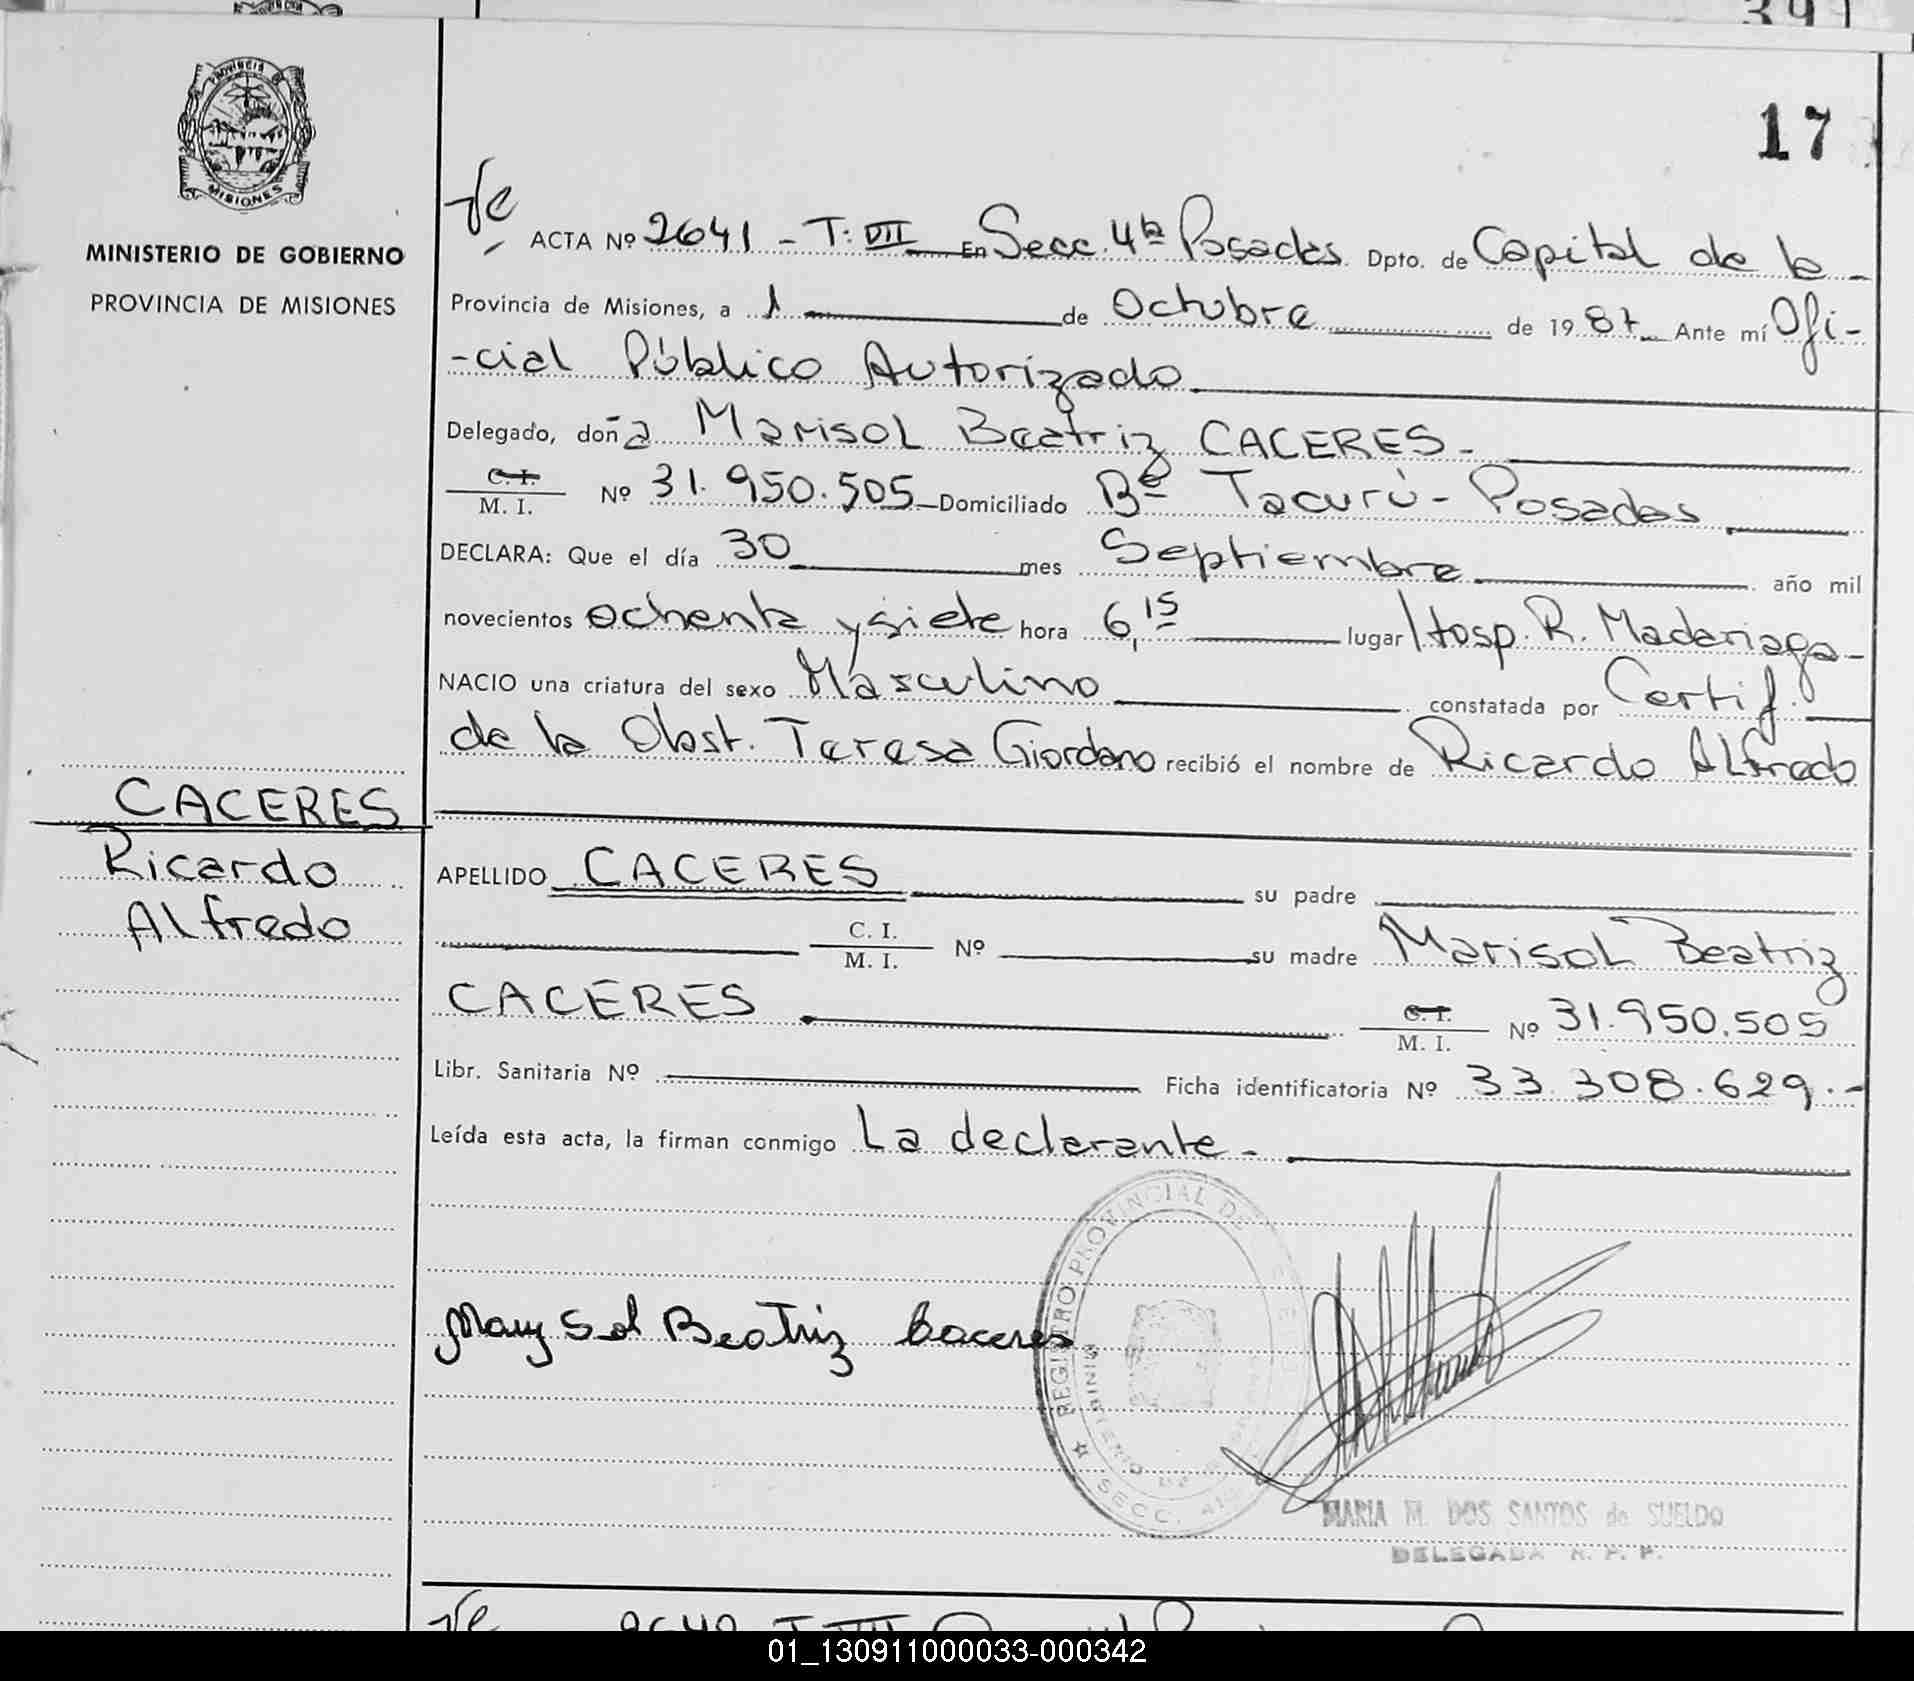 391
PROVINCIA
MISIONES
MINISTERIO DE GOBIERNO
PROVINCIA DE MISIONES
17
ACTA Nº 2641 - T: VII En Secc. 4ta Posadas Dpto. de Capital de la -
Provincia de Misiones, a 1 de Octubre de 1987 Ante mí Ofi-
-cial Público Autorizado
Delegado, doña Marisol Beatriz CACERES -
C. I.
M. I. Nº 31.950.505 Domiciliado Bº Tacurú - Posadas
DECLARA: Que el día 30 mes Septiembre año mil
novecientos ochenta y siete hora 6,15 lugar Hosp. R. Madariaga -
NACIO una criatura del sexo Masculino constatada por Certif.
de la Obst. Teresa Giordano recibió el nombre de Ricardo Alfredo
CACERES
Ricardo
Alfredo
APELLIDO CACERES su padre
C. I.
M. I. Nº su madre Marisol Beatriz
CACERES C. I.
M. I. Nº 31.950.505
Libr. Sanitaria Nº Ficha identificatoria Nº 33.308.629.-
Leída esta acta, la firman conmigo La declarante -
REGISTRO PROVINCIAL DE
SECC.
Marysol Beatriz Caceres
MARIA M. DOS SANTOS de SUELDO
DELEGADA R. P. P.
01_130911000033-000342